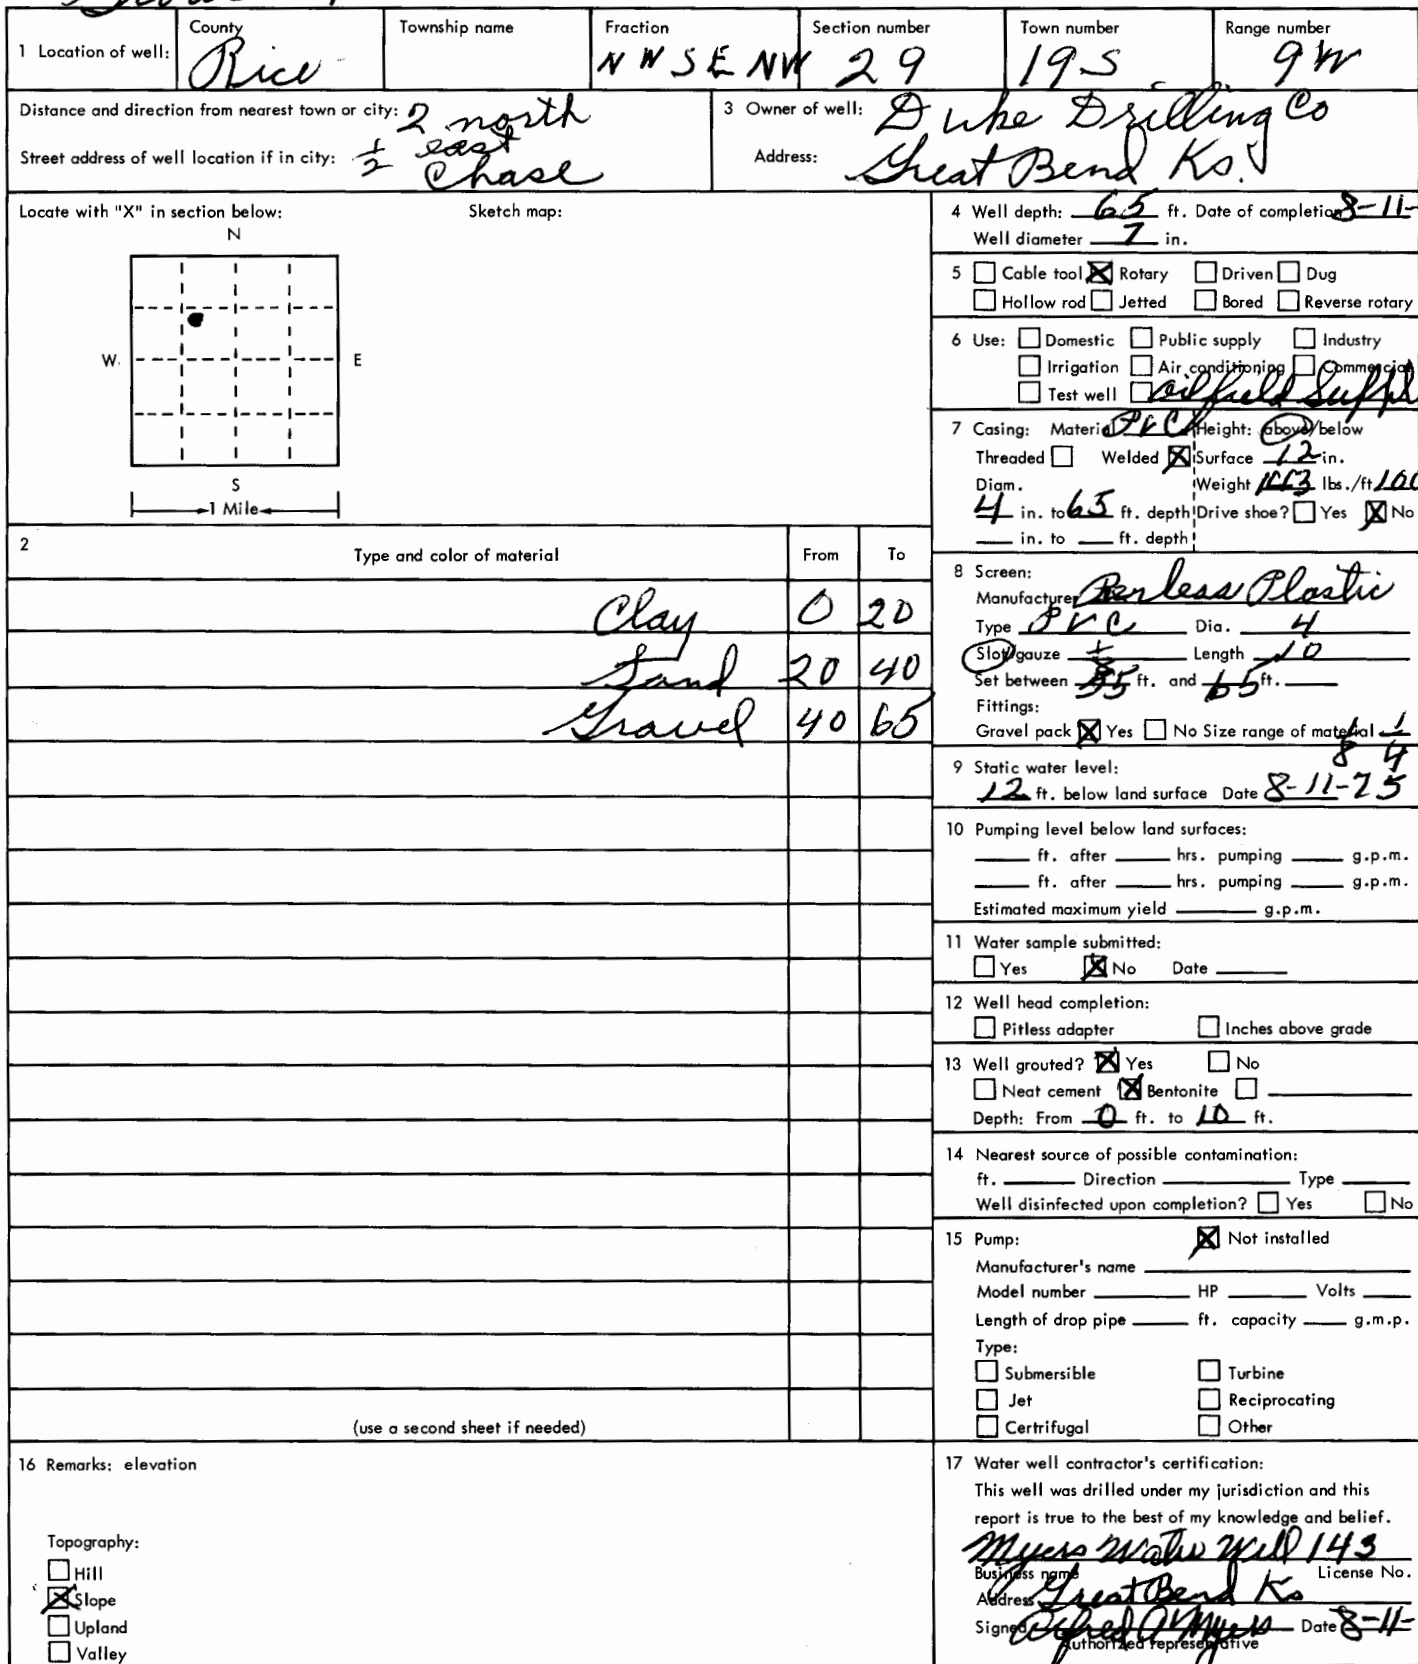 County Township name Fraction Section number Town number Range number
1 Location of well: Rice NW SE NW 29 19S 9W
Distance and direction from nearest town or city: 2 north
Street address of well location if in city: 1/2 east
Chase
3 Owner of well: Duke Drilling Co
Address: Great Bend Ks.
Locate with "X" in section below: Sketch map:
N
W. E
S
1 Mile
4 Well depth: 65 ft. Date of completion 8-11-
Well diameter 7 in.
5 ☐ Cable tool ☒ Rotary ☐ Driven ☐ Dug
☐ Hollow rod ☐ Jetted ☐ Bored ☐ Reverse rotary
6 Use: ☐ Domestic ☐ Public supply ☐ Industry
☐ Irrigation ☐ Air conditioning ☐ Commercial
☐ Test well ☐ Oilfield Suppl
7 Casing: Material PVC Height: above/below
Threaded ☐ Welded ☒ Surface 12 in.
Diam. Weight lbs./ft
4 in. to 65 ft. depth Drive shoe? ☐ Yes ☒ No
___ in. to ___ ft. depth
2 Type and color of material From To
Clay 0 20
Sand 20 40
Gravel 40 65
(use a second sheet if needed)
8 Screen:
Manufacturer Perless Plastic
Type PVC Dia. 4
Slot/gauze 1/8 Length 10
Set between 55 ft. and 65 ft. ___
Fittings:
Gravel pack ☒ Yes ☐ No Size range of material 1/8 1/4
9 Static water level:
12 ft. below land surface Date 8-11-75
10 Pumping level below land surfaces:
___ ft. after ___ hrs. pumping ___ g.p.m.
___ ft. after ___ hrs. pumping ___ g.p.m.
Estimated maximum yield ___ g.p.m.
11 Water sample submitted:
☐ Yes ☒ No Date ___
12 Well head completion:
☐ Pitless adapter ☐ Inches above grade
13 Well grouted? ☒ Yes ☐ No
☐ Neat cement ☒ Bentonite ☐ ___
Depth: From 0 ft. to 10 ft.
14 Nearest source of possible contamination:
ft. ___ Direction ___ Type ___
Well disinfected upon completion? ☐ Yes ☐ No
15 Pump: ☒ Not installed
Manufacturer's name ___
Model number ___ HP ___ Volts ___
Length of drop pipe ___ ft. capacity ___ g.m.p.
Type:
☐ Submersible ☐ Turbine
☐ Jet ☐ Reciprocating
☐ Certrifugal ☐ Other
16 Remarks: elevation
Topography:
☐ Hill
☒ Slope
☐ Upland
☐ Valley
17 Water well contractor's certification:
This well was drilled under my jurisdiction and this
report is true to the best of my knowledge and belief.
Myers Water Well 143
Business name License No.
Address Great Bend Ks
Signed Alfred A Myers Date 8-11-
Authorized representative